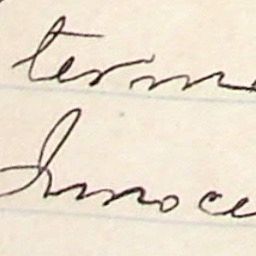 term
Innoce